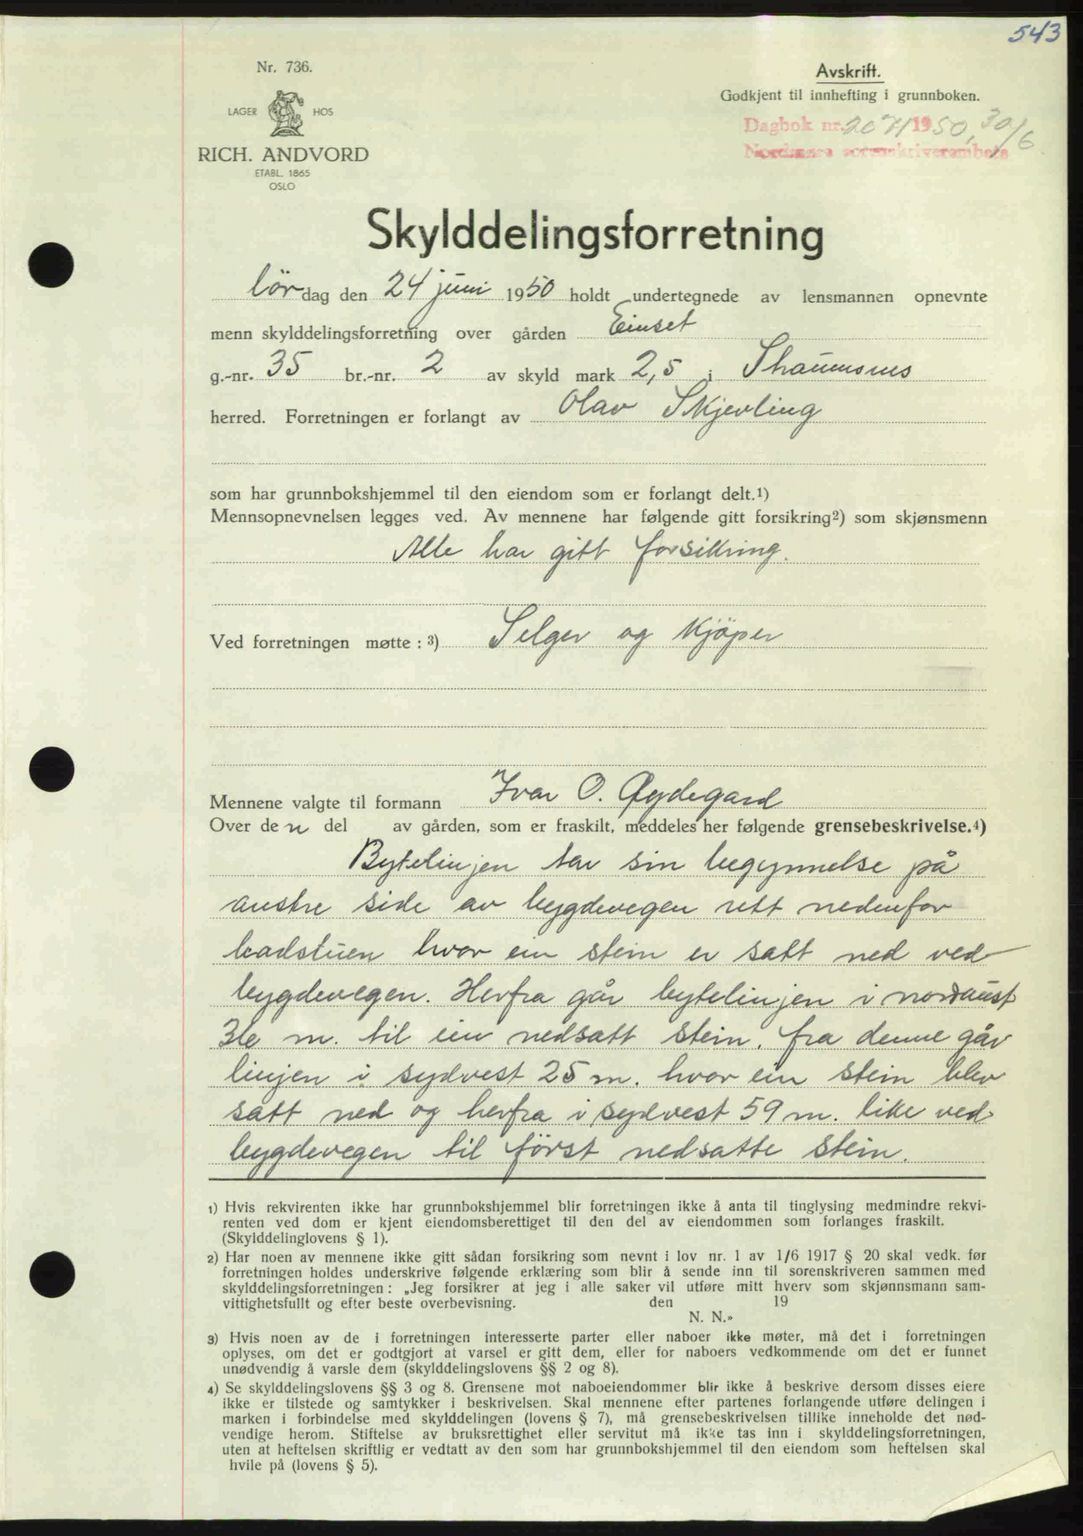 543
Nr. 736.
LAGER HOS
RICH. ANDVORD
ETABL. 1865
OSLO
Avskrift.
Godkjent til innhefting i grunnboken.
Dagbok nr. 2071 1950, 30/6
Nordmøre sorenskriverembete
Skylddelingsforretning
lördag den 24 juni 1950 holdt undertegnede av lensmannen opnevnte
menn skylddelingsforretning over gården Einset
g.-nr. 35 br.-nr. 2 av skyld mark 2,5 i
herred. Forretningen er forlangt av Olav Skjevling
som har grunnbokshjemmel til den eiendom som er forlangt delt.1)
Mennsopnevnelsen legges ved. Av mennene har følgende gitt forsikring2) som skjønsmenn
Alle har gitt forsikring.
Ved forretningen møtte : 3) Selger og Kjöper
Mennene valgte til formann Ivar O. Øydegard
Over den del av gården, som er fraskilt, meddeles her følgende grensebeskrivelse.4)
Bytelinjen tar sin begynnelse på
austre side av bygdevegen rett nedenfor
badstuen hvor ein stein er satt ned ved
bygdevegen. Herfra går bytelinjen i nordaust
36 m. til ein nedsatt stein. fra denne går
linjen i sydvest 25 m. hvor ein stein blev
satt ned og herfra i sydvest 59 m. like ved
bygdevegen til först nedsatte stein.
1) Hvis rekvirenten ikke har grunnbokshjemmel blir forretningen ikke å anta til tinglysing medmindre rekvi-
renten ved dom er kjent eiendomsberettiget til den del av eiendommen som forlanges fraskilt.
(Skylddelinglovens § 1).
2) Har noen av mennene ikke gitt sådan forsikring som nevnt i lov nr. 1 av 1/6 1917 § 20 skal vedk. før
forretningen holdes underskrive følgende erklæring som blir å sende inn til sorenskriveren sammen med
skylddelingsforretningen : „Jeg forsikrer at jeg i alle saker vil utføre mitt hverv som skjønnsmann sam-
vittighetsfullt og efter beste overbevisning. den 19
N. N.»
3) Hvis noen av de i forretningen interesserte parter eller naboer ikke møter, må det i forretningen
oplyses, om det er godtgjort at varsel er gitt dem, eller for naboers vedkommende om det er funnet
unødvendig å varsle dem (skylddelingslovens §§ 2 og 8).
4) Se skylddelingslovens §§ 3 og 8. Grensene mot naboeiendommer blir ikke å beskrive dersom disses eiere
ikke er tilstede og samtykker i beskrivelsen. Skal mennene efter partenes forlangende utføre delingen i
marken i forbindelse med skylddelingen (lovens § 7), må grensebeskrivelsen tillike inneholde det nød-
vendige herom. Stiftelse av bruksrettighet eller servitut må ikke tas inn i skylddelingsforretningen,
uten at heftelsen skriftlig er vedtatt av den som har grunnbokshjemmel til den eiendom som heftelsen skal
hvile på (lovens § 5).